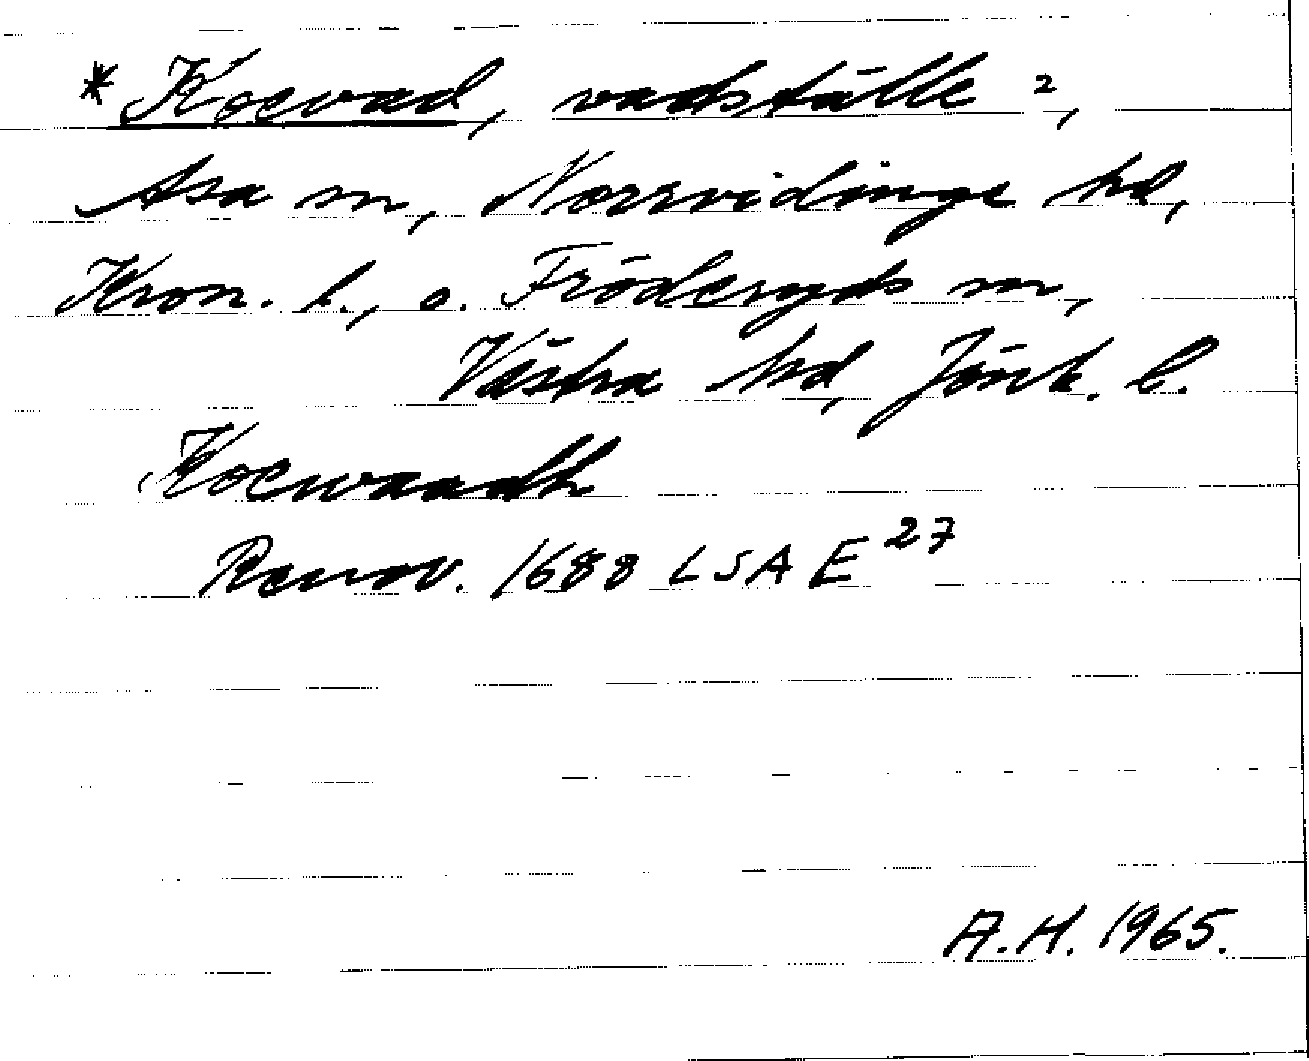 * Kocvad, vadställe ?,
Asa sn, Norrvidinge hd,
Kron. l., o. Fröderyds sn,
Västra hd, Jönk. l.
Kocwaadh
Renov. 1688 LSA E 27
A.H. 1965.